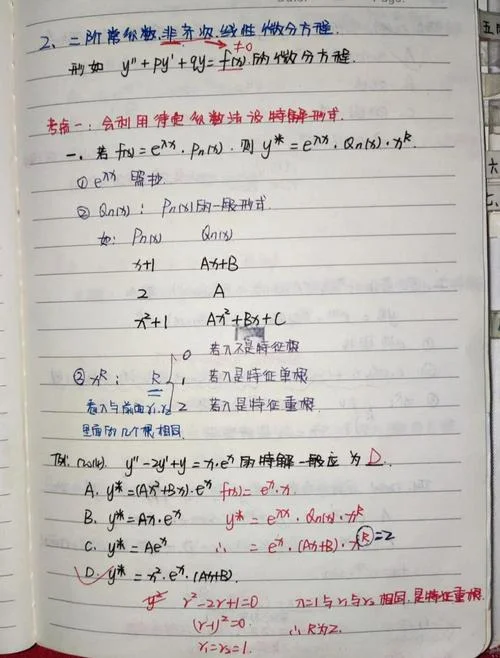 2、二阶常系数,非齐次,线性微分方程.
≠0
形如 y''+py'+qy=f(x).的微分方程.
考点一:会利用待定系数法设特解形式.
一.若f(x)=e^{λx}·Pn(x).则y*=e^{λx}·Qn(x)·x^R
① e^{λx} 照抄
② Qn(x):Pn(x)的一般形式.
如: Pn(x) Qn(x)
x+1 Ax+B
2 A
x²+1 Ax²+Bx+C
0 若λ不是特征根
③ x^R: R 1 若λ是特征单根
看λ与前面r₁,r₂ 2 若λ是特征重根.
里面的几个根相同.
y''-2y'+y=x·e^x的特解一般应为D.
A. y*=(Ax²+Bx)·e^x f(x)=e^x·x
B. y*=Ax·e^x y*=e^x·Qn(x)·x^R
C. y*=Ae^x ∴ =e^x·(Ax+B)·x^R=2
D. y*=x²·e^x·(Ax+B).
r²-2r+1=0 λ=1与r₁与r₂相同,是特征重根
(r-1)²=0. ∴R为2.
r₁=r₂=1.